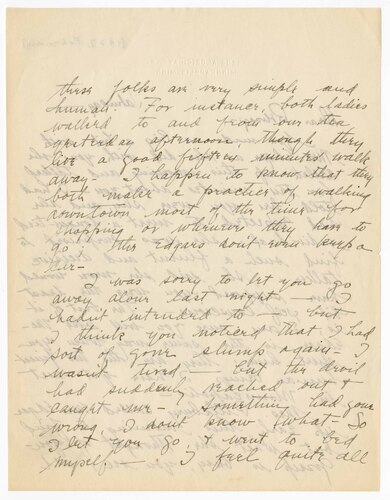 these folks are very simple and
human. For instance, both ladies
walked to and from our tea
yesterday afternoon though they
live a good fifteen minutes walk
away - I happen to know that they
both make a practice of walking
downtown most of the time for
shopping or wherever they have to
go. The Edgars don't even keep a
car -
I was sorry to let you go
away alone last night - I
hadn't intended to - but
I think you noticed that I had
sort of gone slump again - I
wasn't tired - but the devil
had suddenly reached out &
caught me - Something had gone
wrong, I don't know what - So
I let you go, & went to bed
myself - I feel quite all